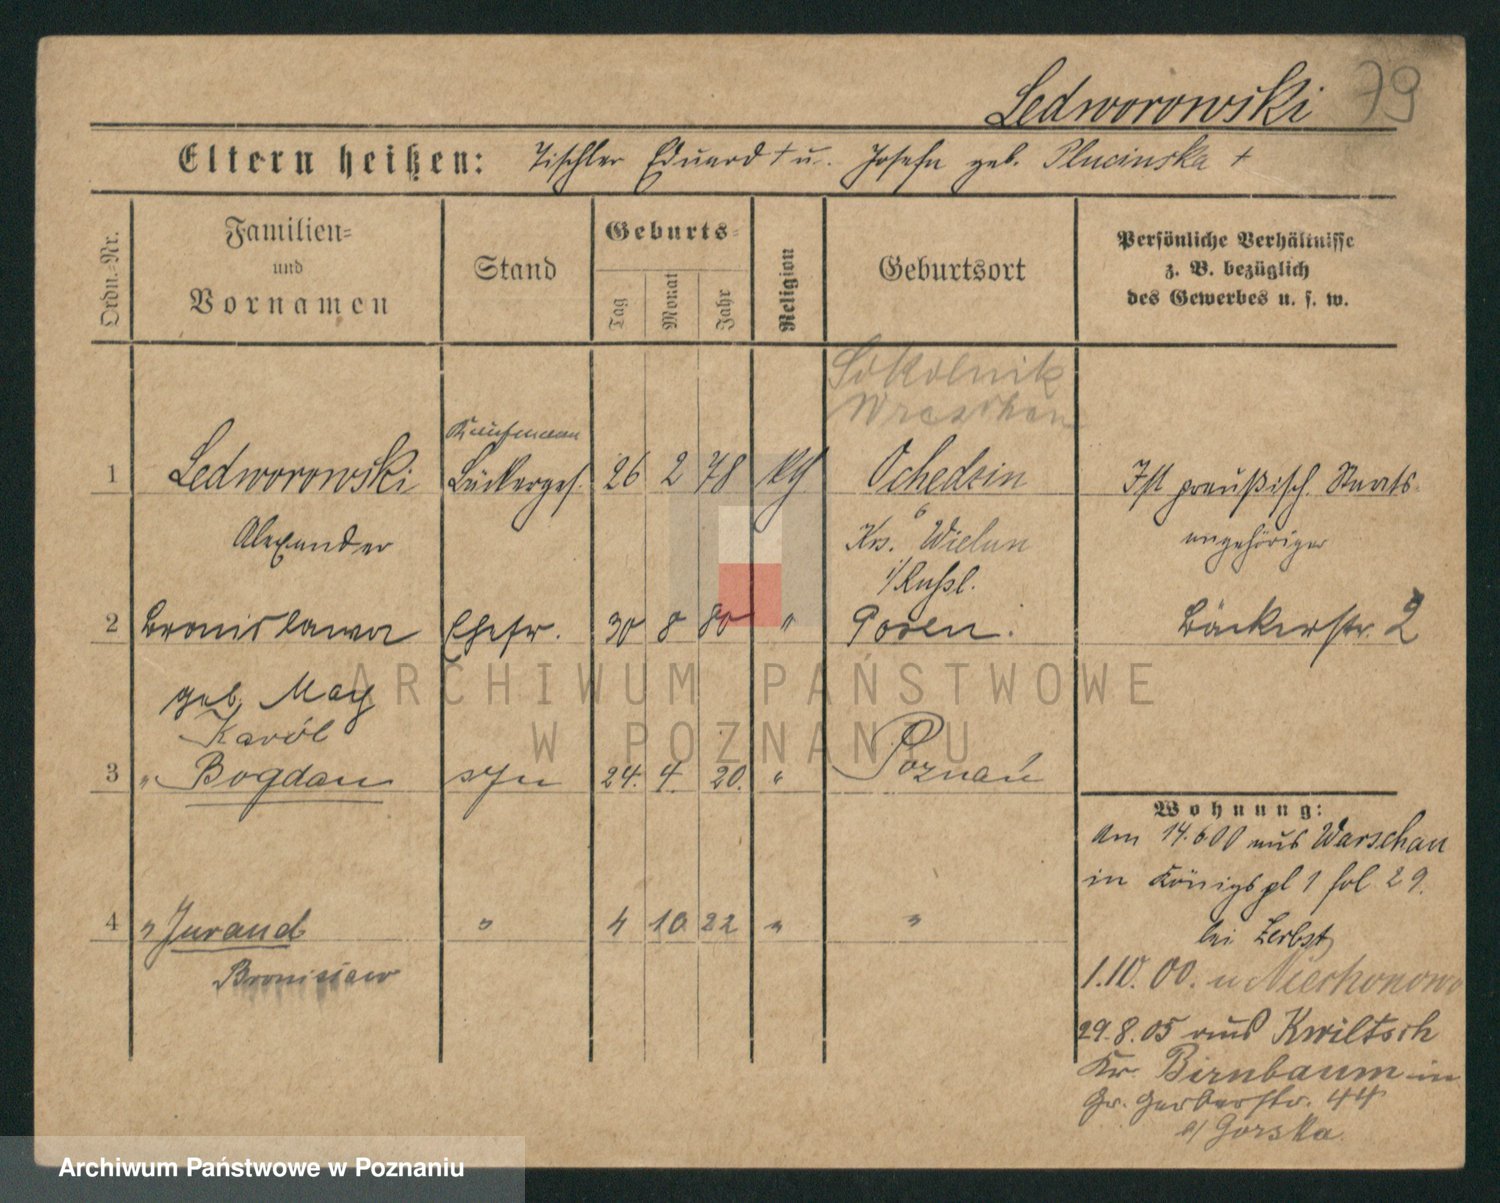 Ledworowski 79
Eltern heißen: Tischler Eduard † u. Josefa geb. Plucinska †
Ordn.-Nr.
Familien- und Vornamen
Stand
Geburts-
Tag Monat Jahr
Religion
Geburtsort
Persönliche Verhältnisse
z. B. bezüglich
des Gewerbes u. s. w.
Sokolnik
Wreschen
Kaufmann
1 Ledworowski Bäckerges. 26 2 78 kth Ochedzin Ist preußisch. Staats-
Alexander Krs. Wielun angehöriger
i/Rußl.
2 Bronislawa Ehefr. 30 8 80 " Posen. Bäckerstr. 2
geb. May
Karól
3 " Bogdan syn 24. 4. 20. " Poznań
Wohnung:
Am 14.6 00 aus Warschau
in Königspl 1 fol 29.
4 " Jurand " 4 10 22 " "
bei Zerbst
Bronisław
1.10.00. n
29.8.05 aus Kwiltsch
Kr. Birnbaum in
Gr. Gerberstr. 44
b/ Gorska.
ARCHIWUM PAŃSTWOWE
W POZNANIU
Archiwum Państwowe w Poznaniu